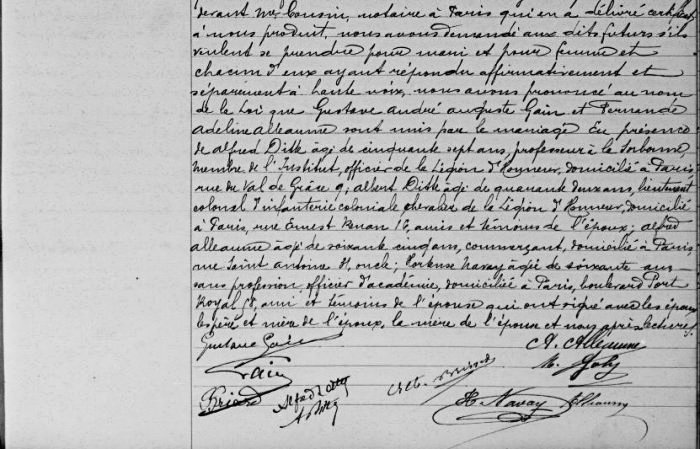 devant Me Cousin, notaire à Paris qui en a délivré certificat
à nous produit, nous avons demandé aux dits futurs s'ils
veulent se prendre pour mari et pour femme et
chacun d'eux ayant répondu affirmativement et
séparément à haute voix, nous avons prononcé au nom
de la Loi que Gustave André Auguste Gain et Fernande
Adeline Alleaume sont unis par le mariage En présence
de Alfred Ditte âgé de cinquante sept ans, professeur à la Sorbonne,
membre de l'Institut, officier de la Légion d'Honneur, domicilié à Paris,
rue du Val de Grâce 9; Albert Ditte âgé de quarante deux ans, lieutenant
colonel d'infanterie coloniale chevalier de la Légion d'Honneur, domicilié
à Paris, rue Ernest Renan 16, amis et témoins de l'époux; Alfred
Alleaume âgé de soixante cinq ans, commerçant, domicilié à Paris
rue Saint Antoine, oncle; Navay âgée de soixante ans
sans profession, officier d'académie, domiciliée à Paris, boulevard Port
Royal, ami et témoins de l'épouse qui ont signé avec les époux
les père et mère de l'époux, la mère de l'épouse et nous après lecture.
Gustave Gain A. Alleaume
Gain
Briard H. Navay Alleaume